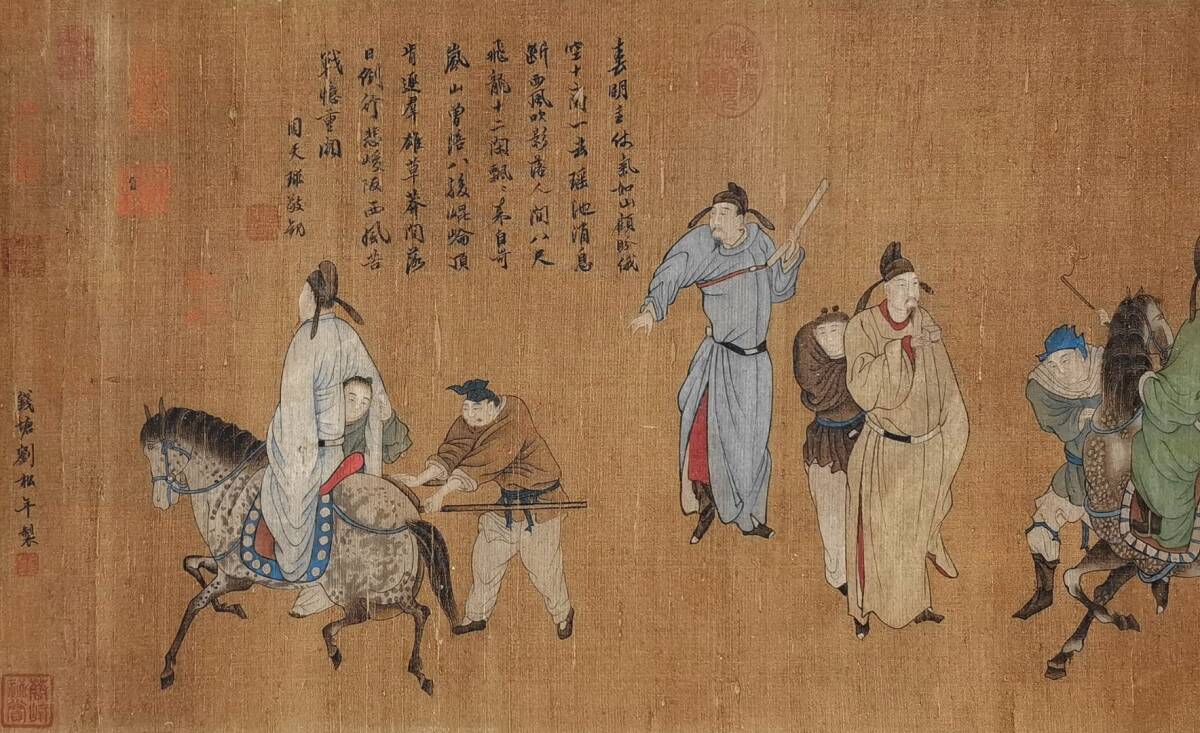 春明立仗氣如山顧盼俄
空十二閑一去瑶池消息
斷西風吹影落人間八尺
飛龍十二閑飄々來自可
嵐山曾陪八駿崐崙頂
肯逐羣雄草莽間落
日倒行悲峻阪西風苦
戰憶重關
周天球敬
錢塘劉松年製